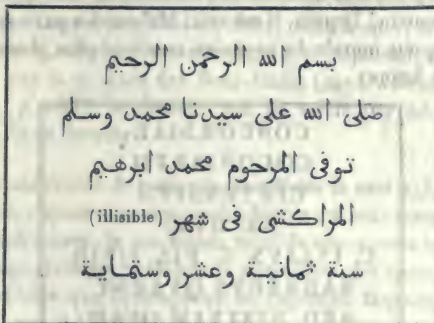 بسم الله الرحمن الرحيم
صلى الله على سيدنا محمد وسلم
توفى المرحوم محمد ابرهيم
المراكشى فى شهر (illisible)
سنة ثمانية وعشر وستماية